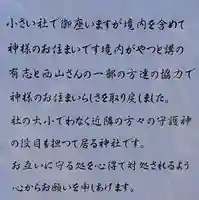 小さい社で御座いますが境内を含めて
神様のお住まいです境内がやつと講の
有志と西山さんの一部の方達の協力で
神様のお住まいらしさを取り戻しました。
社の大小でわなく近隣の方々の守護神
の役目も担つて居る神社です。
お互いに守る処を心得て対処されるよう
心からお願いを申しあげます。